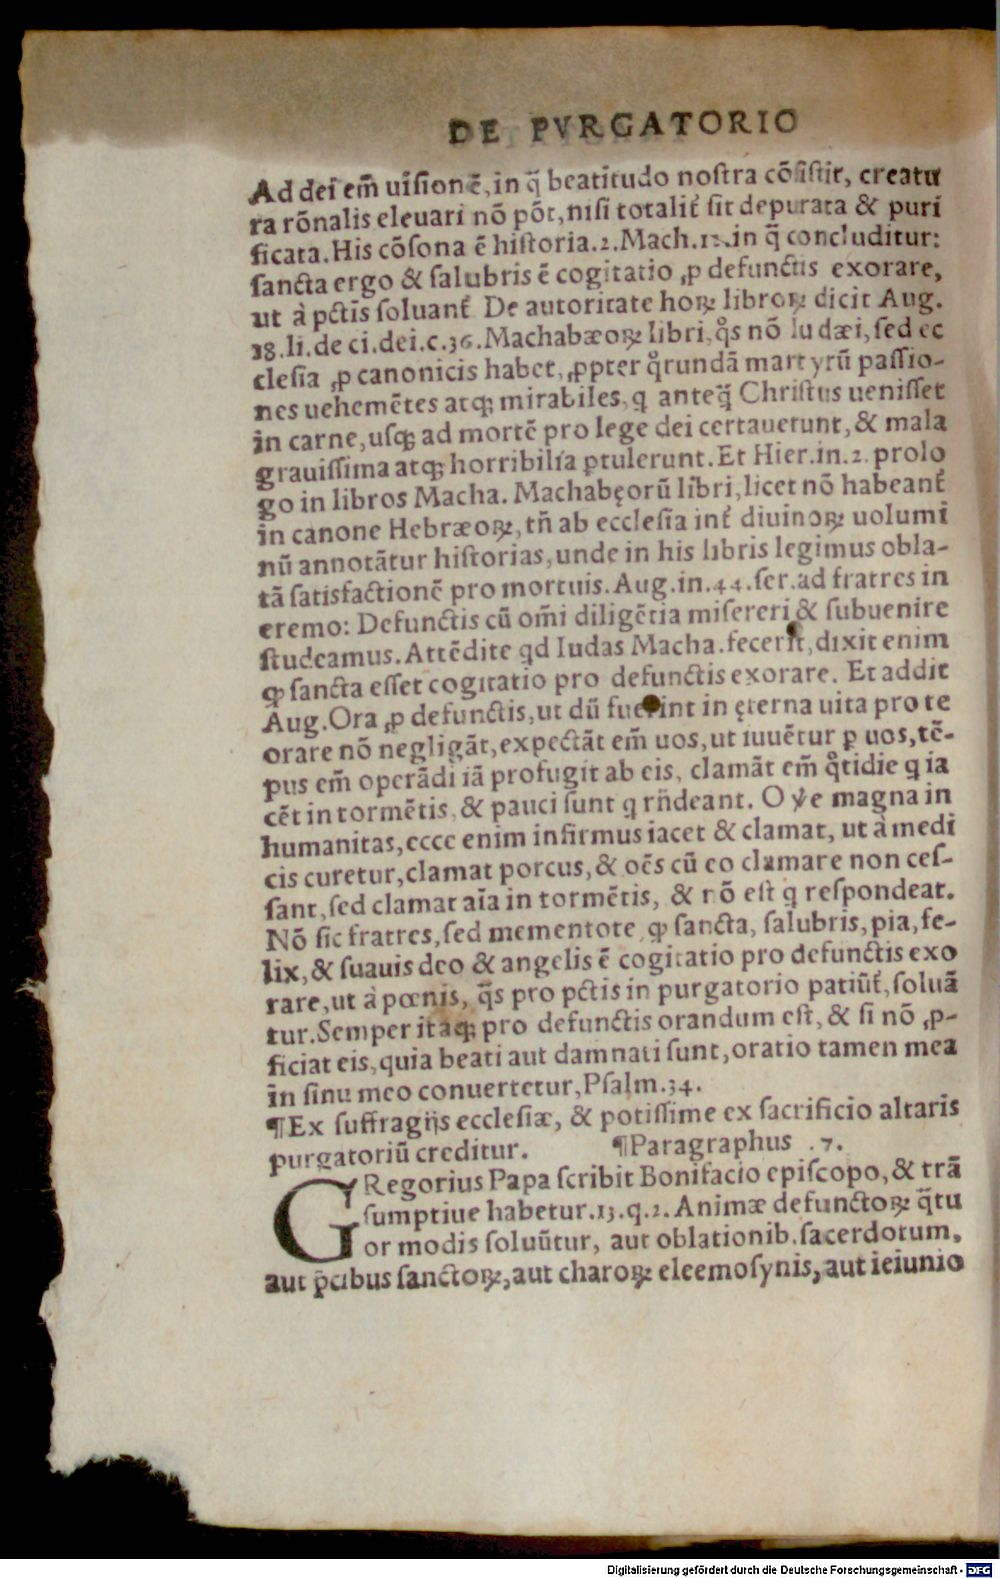 DE PVRGATORIO
Ad dei em̃ uisionẽ, in q̃ beatitudo nostra cõsistit, creatu
ra rõnalis eleuari nõ põt, nisi totalit̃ sit depurata & puri
ficata. His cõsona ẽ historia. 2. Mach. 12. in q̃ concluditur:
sancta ergo & salubris ẽ cogitatio ꝓ defunctis exorare,
ut à pctĩs soluant̃ De autoritate hoꝝ libroꝝ dicit Aug.
18. li. de ci. dei. c. 36. Machabæoꝝ libri, q̊s nõ Iudæi, sed ec
clesia ꝓ canonicis habet, ꝓpter q̊rundã martyrũ passio-
nes uehemẽtes atqꝫ mirabiles, q anteq̃ Christus uenisset
in carne, usqꝫ ad mortẽ pro lege dei certauerunt, & mala
grauissima atqꝫ horribilia ꝑtulerunt. Et Hier. in. 2. prolo
go in libros Macha. Machabęorũ libri, licet nõ habeant̃
in canone Hebræoꝝ, tñ ab ecclesia int̃ diuinoꝝ uolumi
nũ annotãtur historias, unde in his libris legimus obla-
tã satisfactionẽ pro mortuis. Aug. in. 44. ser. ad fratres in
eremo: Defunctis cũ om̃i diligẽtia misereri & subuenire
studeamus. Attẽdite qd Iudas Macha. fecerit, dixit enim
ꝙ sancta esset cogitatio pro defunctis exorare. Et addit
Aug. Ora ꝓ defunctis, ut dũ fuerint in ęterna uita pro te
orare nõ negligãt, expectãt em̃ uos, ut iuuẽtur ꝑ uos, tẽ-
pus em̃ operãdi iã profugit ab eis, clamãt em̃ q̊tidie q ia
cẽt in tormẽtis, & pauci sunt q rñdeant. O ue magna in
humanitas, ecce enim infirmus iacet & clamat, ut à medi
cis curetur, clamat porcus, & oẽs cũ eo clamare non ces-
sant, sed clamat aĩa in tormẽtis, & nõ est q respondeat.
Nõ sic fratres, sed mementote ꝙ sancta, salubris, pia, fe-
lix, & suauis deo & angelis ẽ cogitatio pro defunctis exo
rare, ut à pœnis, q̃s pro pctis in purgatorio patiũt̃, soluã
tur. Semper itaqꝫ pro defunctis orandum est, & si nõ ꝓ-
ficiat eis, quia beati aut damnati sunt, oratio tamen mea
in sinu meo conuertetur, Psalm. 34.
¶Ex suffragijs ecclesiæ, & potissime ex sacrificio altaris
purgatoriũ creditur. ¶Paragraphus .7.
GRegorius Papa scribit Bonifacio episcopo, & trã
sumptiue habetur. 13. q. 2. Animæ defunctoꝝ q̃tu
or modis soluũtur, aut oblationib. sacerdotum,
aut p̃cibus sanctoꝝ, aut charoꝝ eleemosynis, aut ieiunio
Digitalisierung gefördert durch die Deutsche Forschungsgemeinschaft - DFG